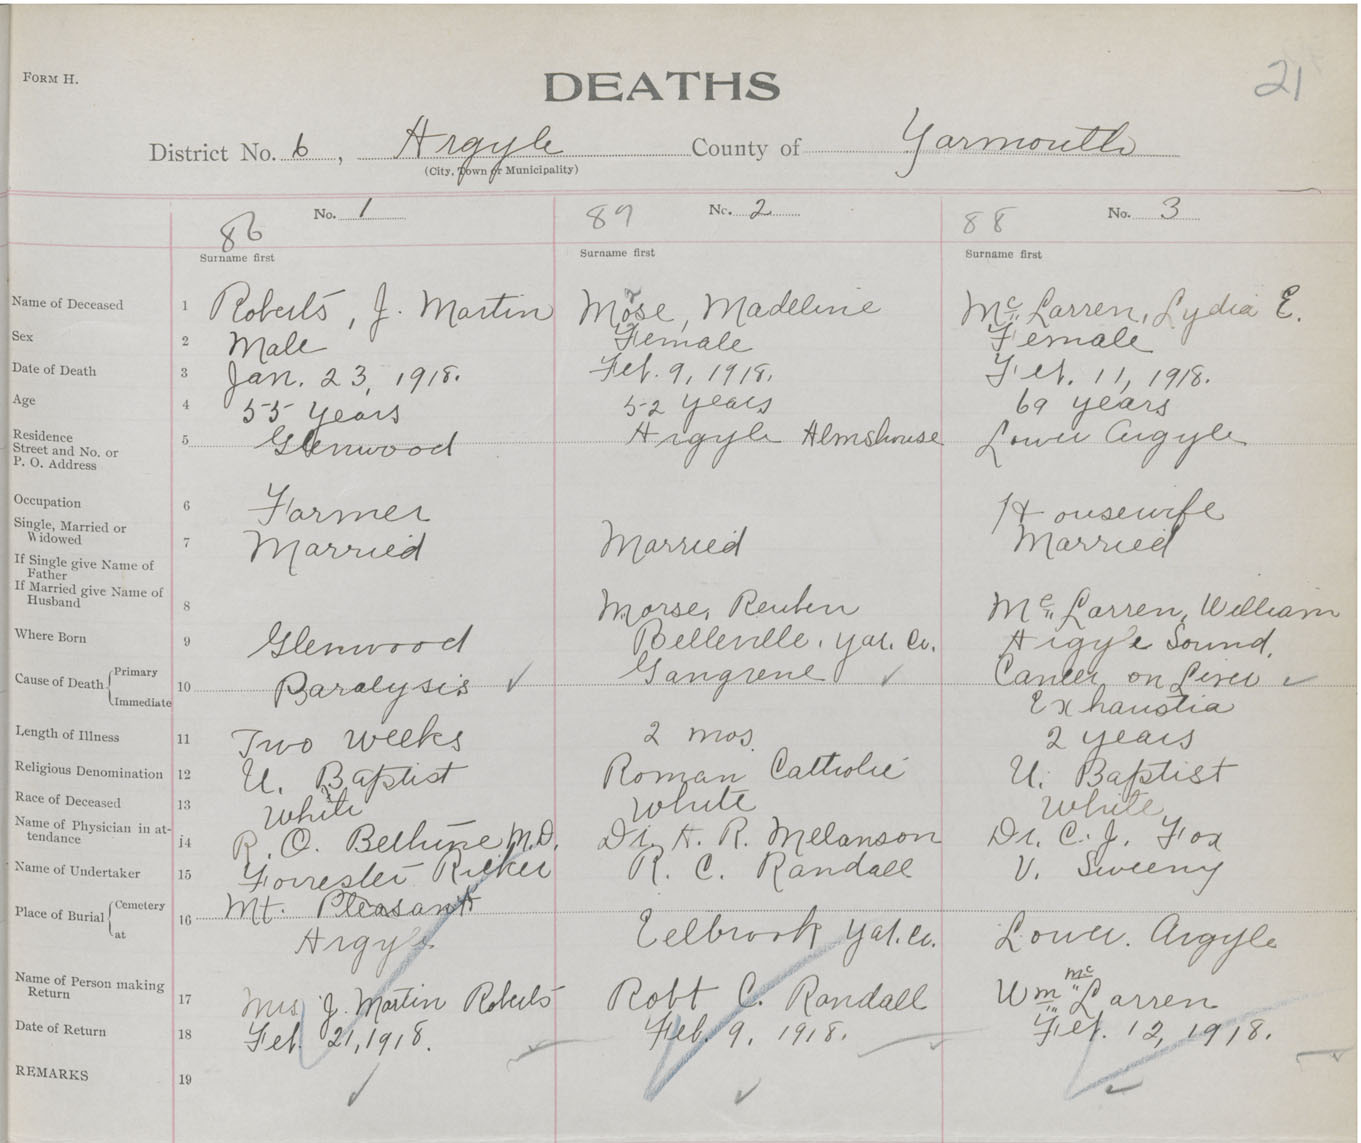 FORM H.
DEATHS
21
District No. 6, Argyle County of Yarmouth
(City, Town or Municipality)
No. 1 No. 2 No. 3
86 89 88
Surname first Surname first Surname first
Name of Deceased 1 Roberts, J. Martin Morse, Madeline Mc Larren, Lydia E.
Sex 2 Male Female Female
Date of Death 3 Jan. 23, 1918. Feb. 9, 1918. Feb. 11, 1918.
Age 4 55 years 52 years 69 years
Residence Street and No. or P. O. Address 5 Glenwood Argyle Almshouse Lower Argyle
Occupation 6 Farmer Housewife
Single, Married or Widowed 7 Married Married Married
If Single give Name of Father
If Married give Name of Husband 8 Morse, Reuben Mc Larren, William
Where Born 9 Glenwood Belleville, Yar. Co. Argyle Sound.
Cause of Death { Primary 10 Paralysis ✓ Gangrene ✓ Cancer on Liver ✓
Immediate Exhaustia
Length of Illness 11 Two weeks 2 mos. 2 years
Religious Denomination 12 U. Baptist Roman Catholic U. Baptist
Race of Deceased 13 White White White
Name of Physician in attendance 14 R. O. Bethune M.D. Dr. A. R. Melanson Dr. C. J. Fox
Name of Undertaker 15 Forrester Ricker R. C. Randall V. Sweeny
Place of Burial { Cemetery 16 Mt. Pleasant
at Argyle Eelbrook Yar. Co. Lower Argyle
Name of Person making Return 17 Mrs J. Martin Roberts Robt C. Randall Wm Mc Larren
Date of Return 18 Feb. 21, 1918. Feb. 9, 1918. Feb. 12, 1918.
REMARKS 19